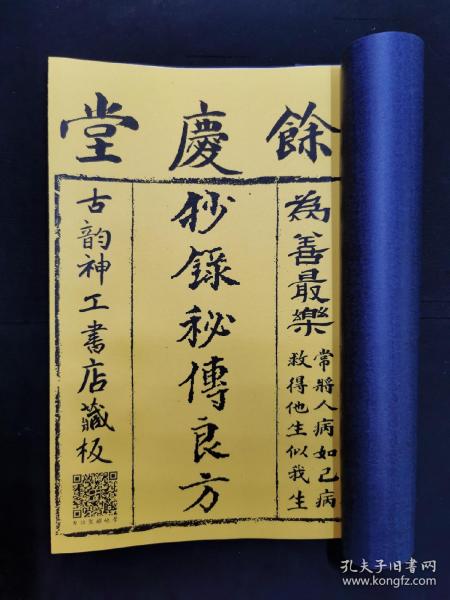 餘慶堂
為善最樂
常將人病如己病
救得他生似我生
抄錄秘傳良方
古韵神工書店藏板
孔夫子旧书网
www.kongfz.com